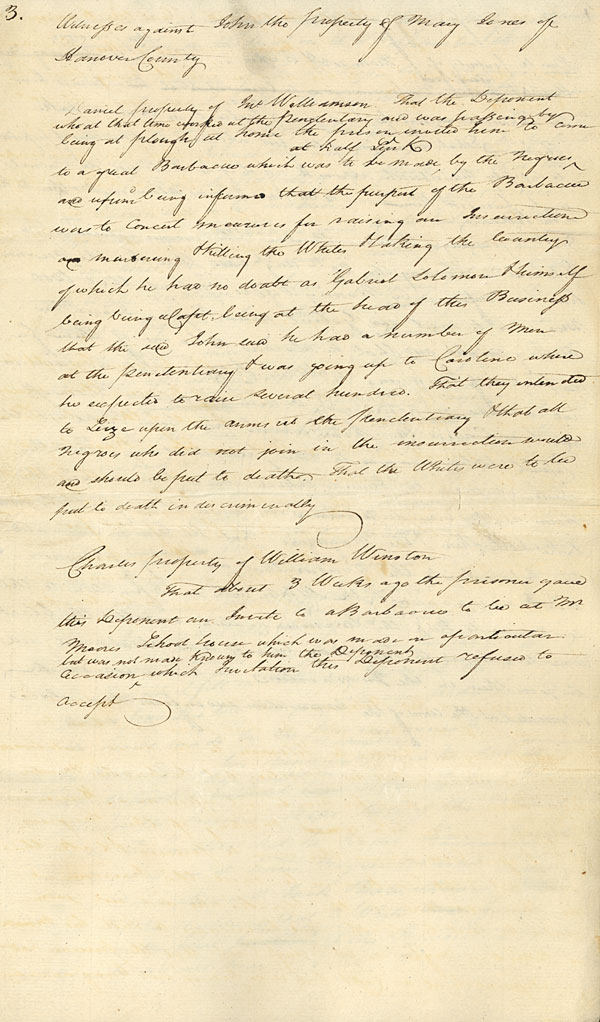 3.
Witnesses against John the property of Mary Jones of
Hanover County
Daniel property of Jno Williamson That the Deponent
who at that time worked at the Penetentiary and was passing by
being at plough at home the prison invited him to come
at half Sink
to a great Barbacue which was to be made by the Negroes
and upon being informd that the purport of the Barbacue
was to concert measures for raising an Insurrection
murdering & killing the Whites & taking the Country
of which he had no doubt as Gabriel Solomon & himself
being being a Capt. being at the head of this Business
that the said John said he had a number of Men
at the penetentiary & was going up to Caroline where
he expected to raise several hundred. That they intended
to Seize upon the arms at the penetentiary & that all
Negroes who did not join in the insurrection would
and should be put to death. That the Whites were to be
put to death indiscriminally
Charles property of William Winston
That about 3 Weeks ago the prisoner gave
this Deponent an Invite to a Barbacue to be at Mr
Moores School house which was made on a particular
but was not made known to him the Deponent
accasion which Invitation this Deponent refused to
accept